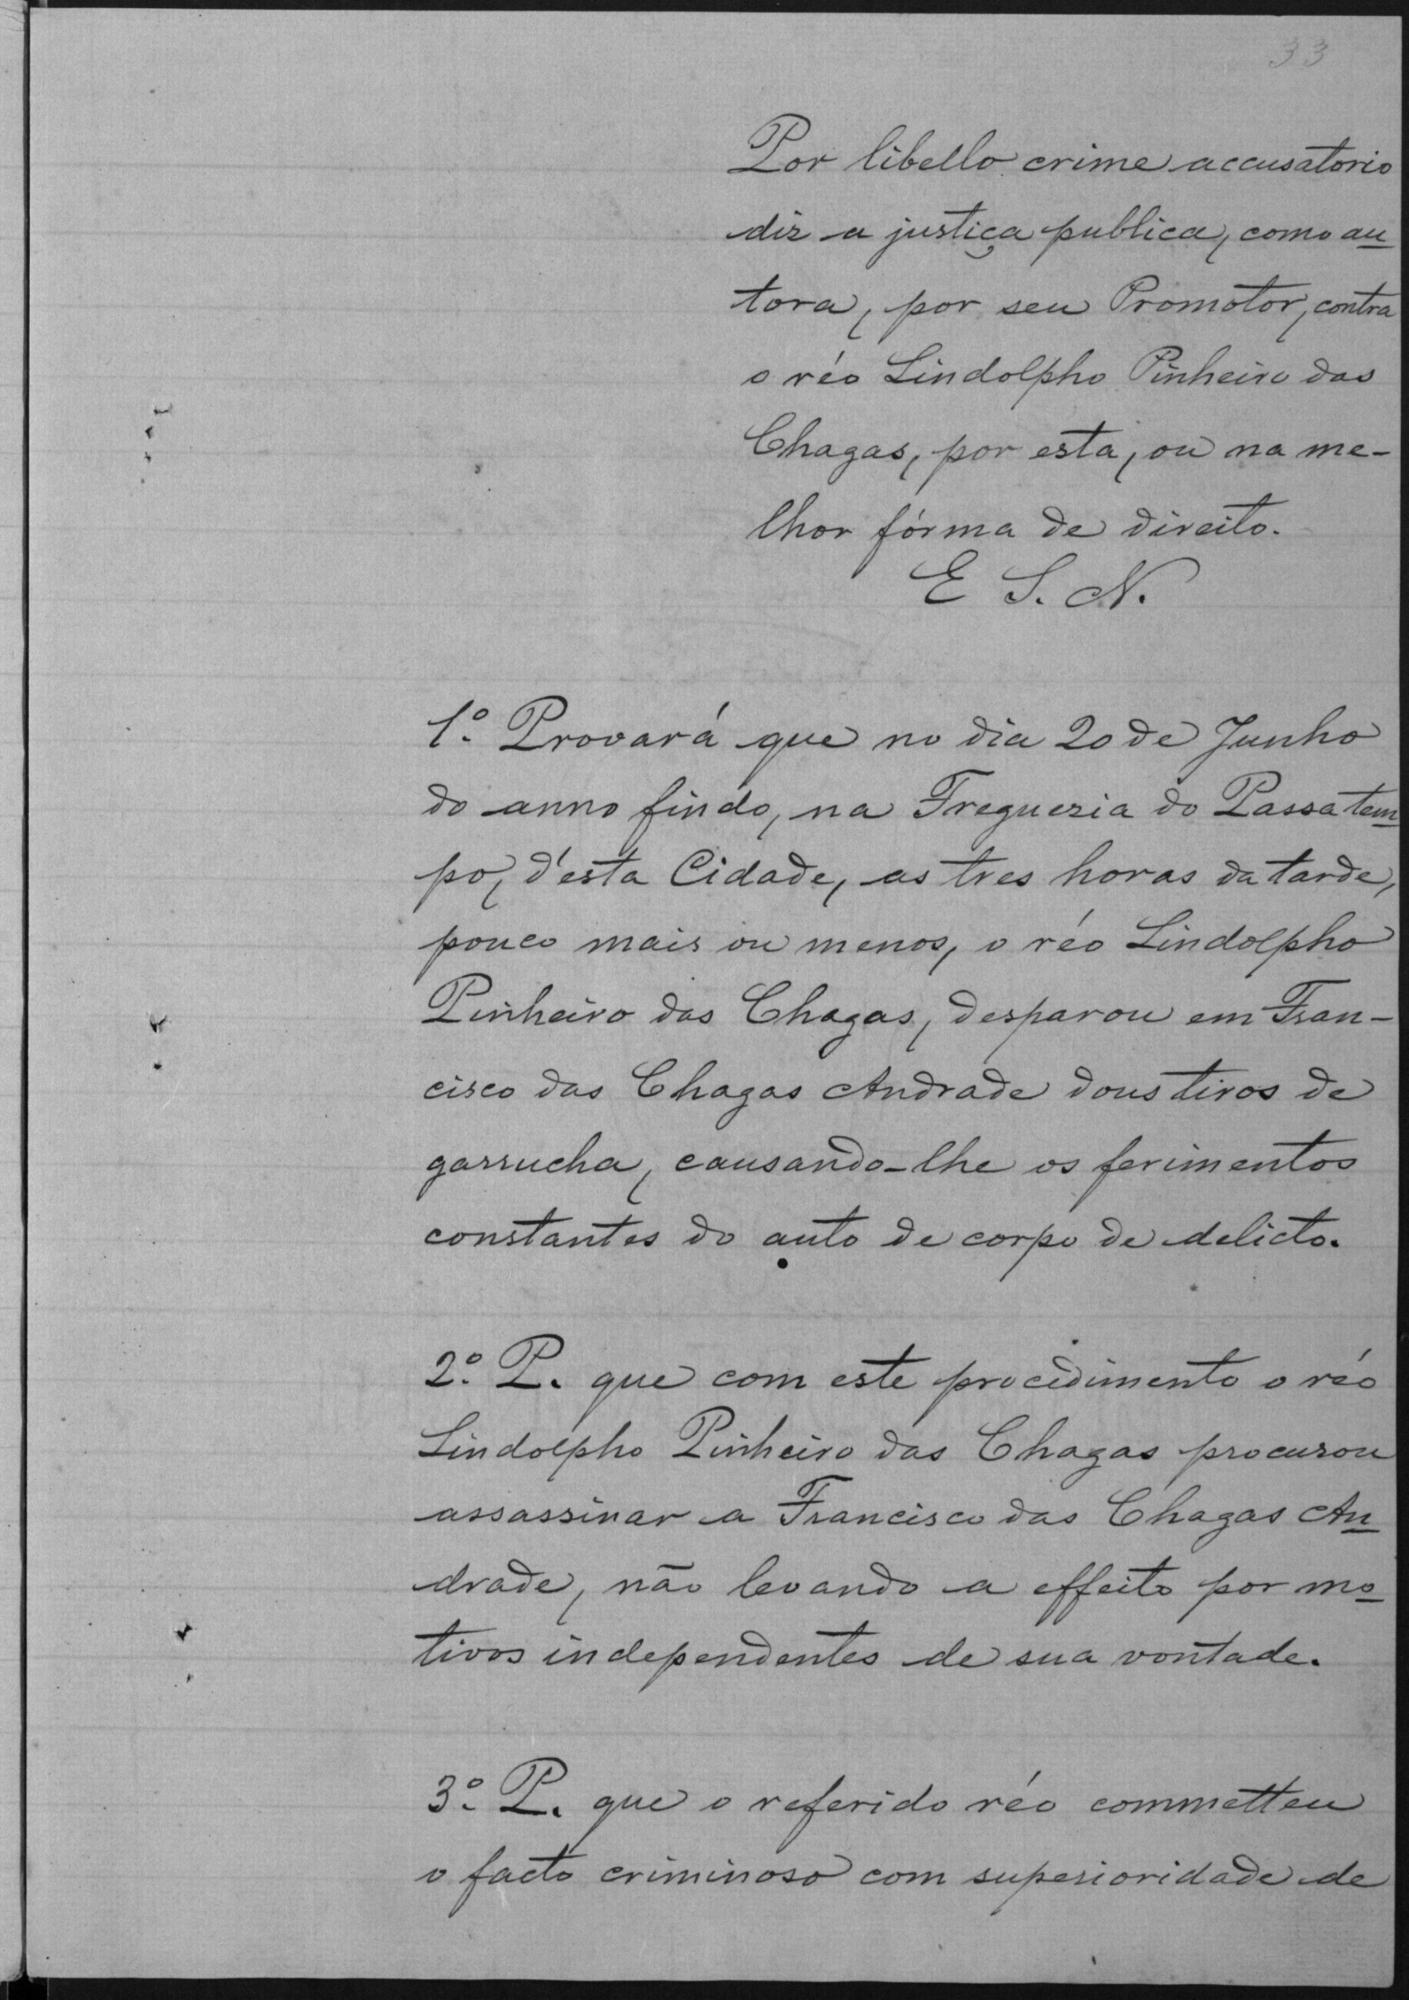 33
Por libello crime accusatorio
diz a justiça publica, como au
tora, por seu Promotor, contra
o réo Lindolpho Pinheiro das
Chagas, por esta, ou na me-
lhor fórma de direito.
E S. N.
1º. Provará que no dia 20 de Junho
do anno findo, na Freguezia do Passatem
po, d'esta Cidade, as tres horas da tarde,
pouco mais ou menos, o réo Lindolpho
Pinheiro das Chagas, desparou em Fran-
cisco das Chagas Andrade dous tiros de
garrucha, causando-lhe os ferimentos
constantes do auto de corpo de delicto.
2º. P. que com este procedimento o réo
Lindolpho Pinheiro das Chagas procurou
assassinar a Francisco das Chagas An
drade, não levando a effeito por mo
tivos independentes de sua vontade.
3º. P. que o referido réo commetteu
o facto criminoso com superioridade de